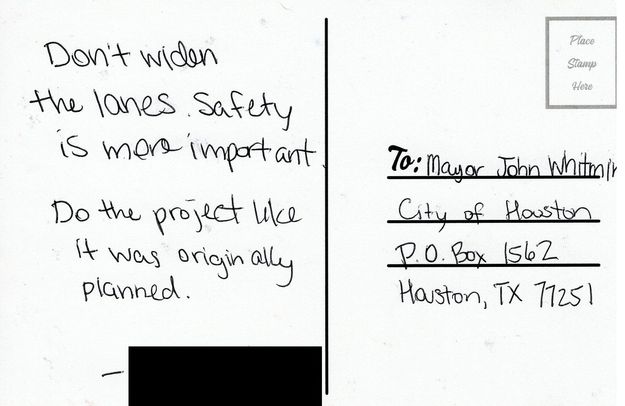 Don't widen
the lanes. Safety
is more important.
Do the project like
it was originally
planned.
—
Place
Stamp
Here
To: Mayor John Whitmir
City of Houston
P.O. Box 1562
Houston, TX 77251